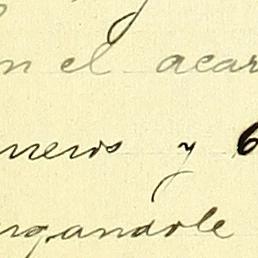 n el acar
neros y 6
rgandole